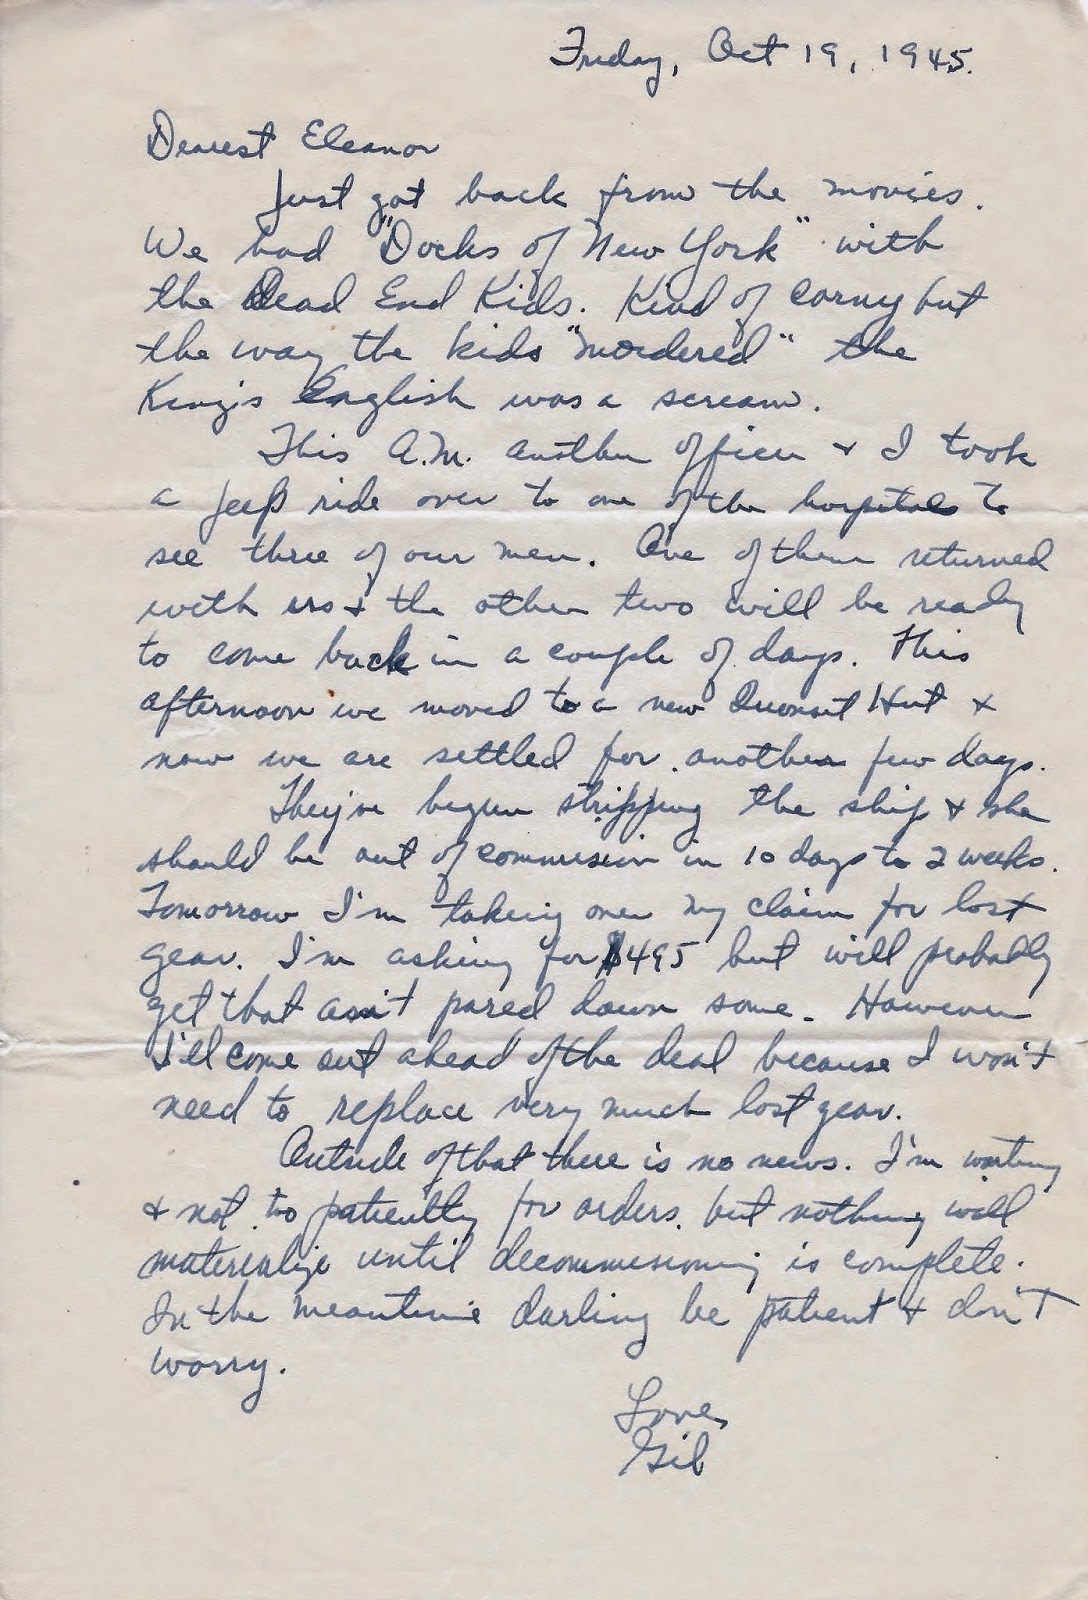 Friday, Oct 19, 1945.
Dearest Eleanor
Just got back from the movies.
We had "Docks of New York" with
the Dead End Kids. Kind of corny but
the way the kids "murdered" the
King's English was a scream.
This A.M. another officer + I took
a jeep ride over to one of the hospitals to
see three of our men. One of them returned
with us + the other two will be ready
to come back in a couple of days. This
afternoon we moved to a new Quonset Hut +
now we are settled for another few days.
They've begun stripping the ship + she
should be out of commission in 10 days to 2 weeks.
Tomorrow I'm taking over my claim for lost
gear. I'm asking for $495 but will probably
get that amt pared down some. However
I'll come out ahead of the deal because I won't
need to replace very much lost gear.
Outside of that there is no news. I'm waiting
+ not too patiently for orders, but nothing will
materialize until decommissioning is complete.
In the meantime darling be patient + don't
worry.
Love,
Gil